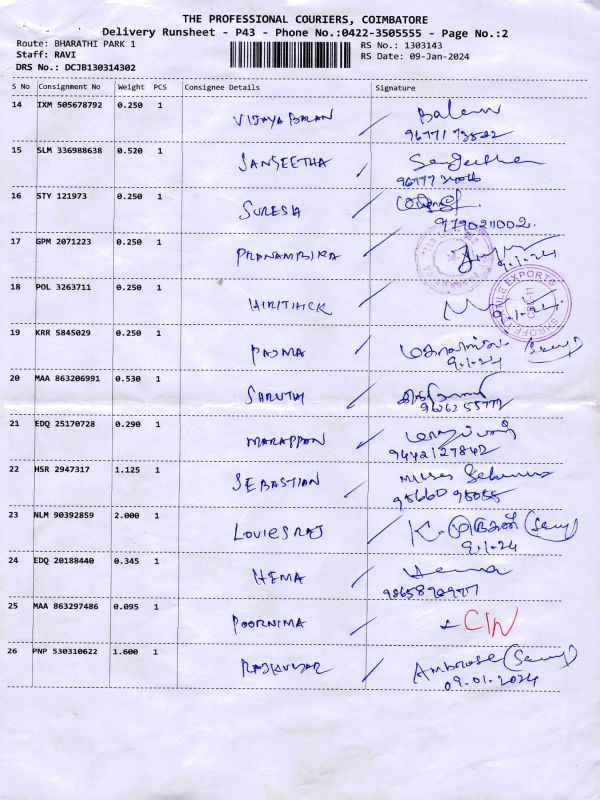 THE PROFESSIONAL COURIERS, COIMBATORE
Delivery Runsheet - P43 - Phone No.:0422-3505555 - Page No.:2
Route: BHARATHI PARK 1 RS No.: 1303143
Staff: RAVI RS Date: 09-Jan-2024
DRS No.: DCJB130314302
S No Consignment No Weight PCS Consignee Details Signature
14 IXM 505678792 0.250 1 VIJAYA BALAN
15 SLM 336988638 0.520 1 SANGEETHA
16 STY 121973 0.250 1 SURESH
9790211002.
17 GPM 2071223 0.250 1 PRANAMBIKA
9.1.24
18 POL 3263711 0.250 1 HIRITHICK
9.1.24
19 KRR 5845029 0.250 1 PADMA
9.1.24
20 MAA 863206991 0.530 1 SARUTHI
21 EDQ 25170728 0.290 1 MARAPPAN
9442127842
22 HSR 2947317 1.125 1 SEBASTIAN
23 NLM 90392859 2.000 1 LOVIESRAJ
9.1.24
24 EDQ 20188440 0.345 1 HEMA Hema
25 MAA 863297486 0.095 1 POORNIMA
26 PNP 530310622 1.600 1 RAJKUMAR Ambrose
09.01.2024